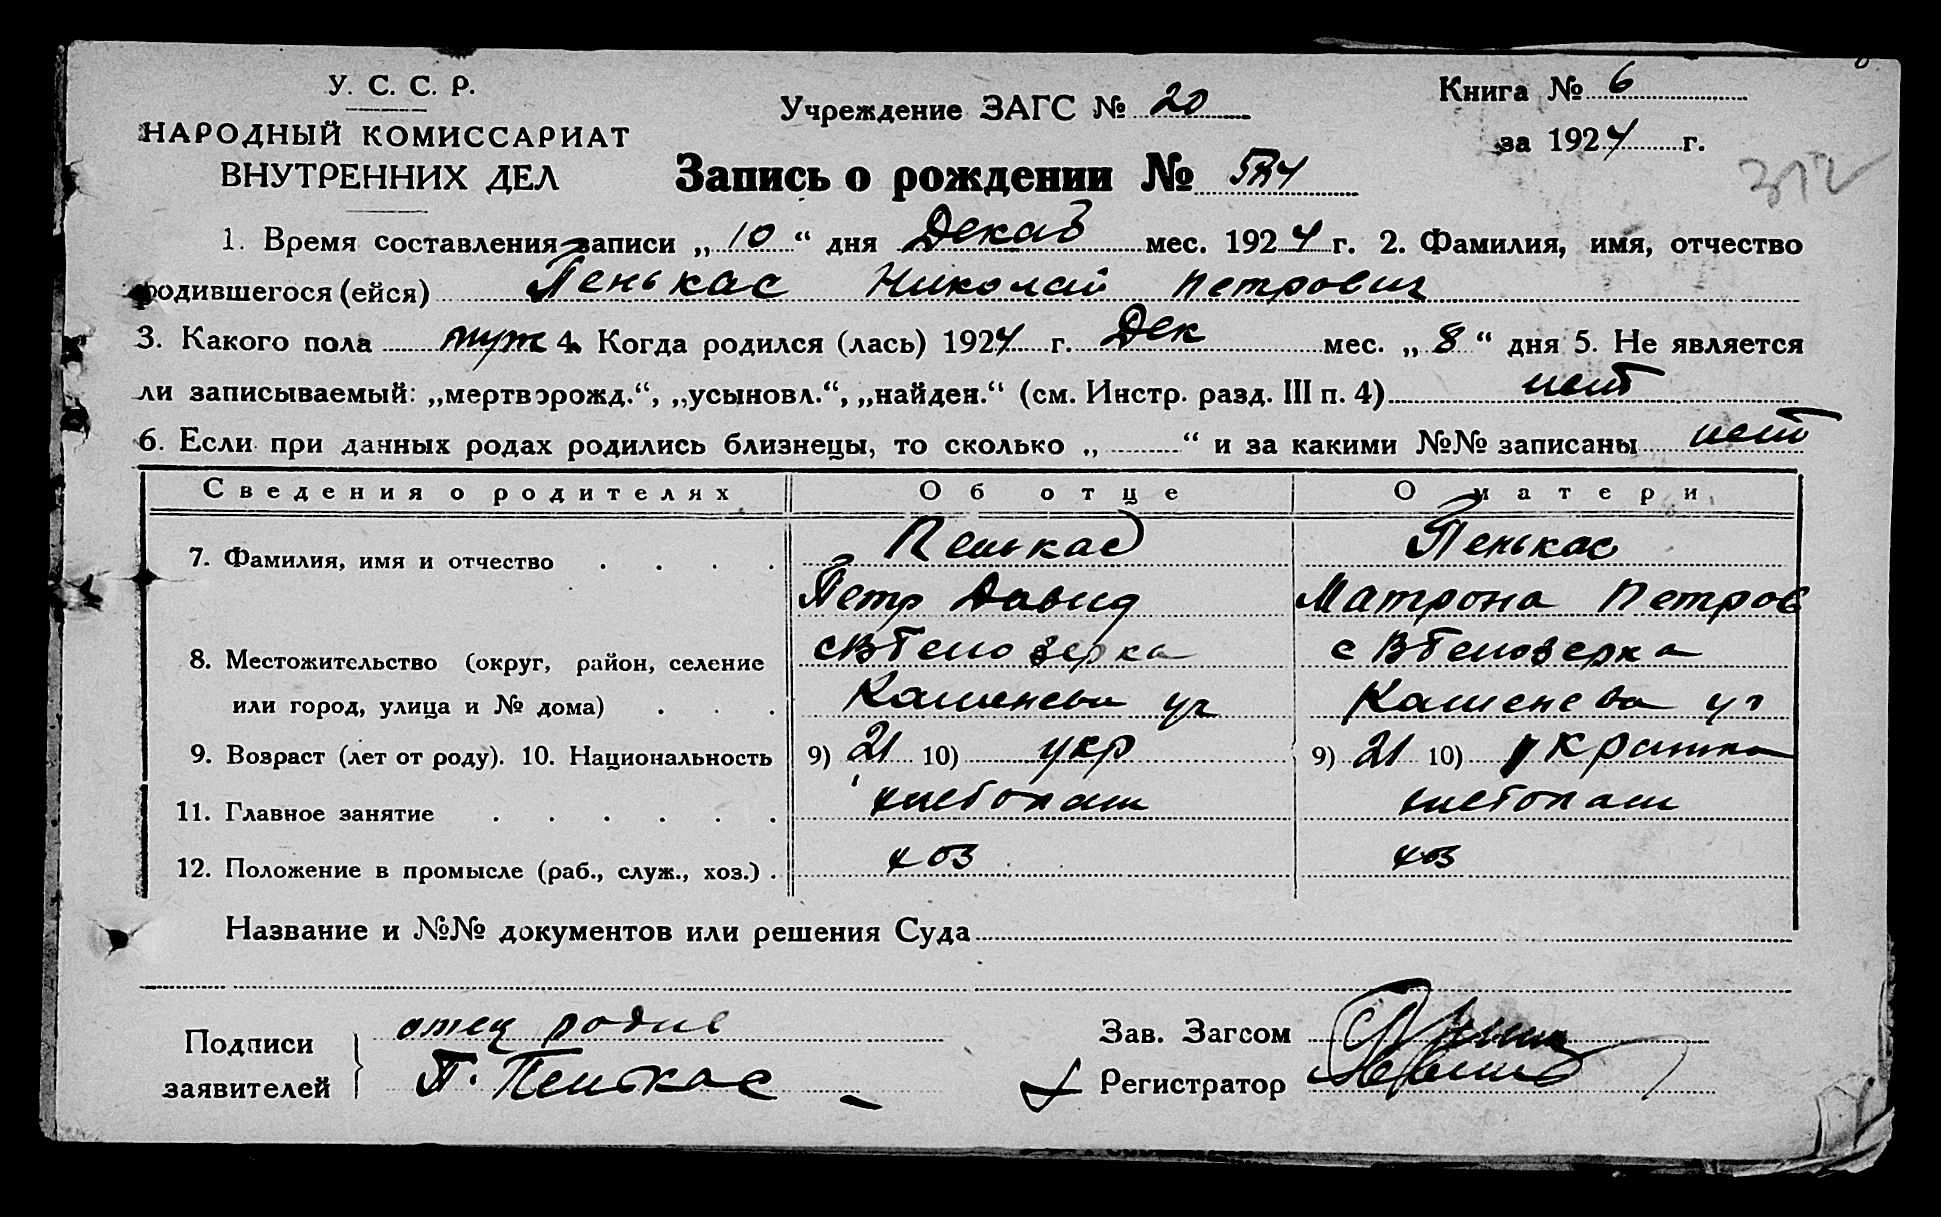 У. С. С. Р.
НАРОДНЫЙ КОМИССАРИАТ
ВНУТРЕННИХ ДЕЛ
Учреждение ЗАГС № 20
Книга № 6
за 1924 г.
312
Запись о рождении №
1. Время составления записи „ 10 “ дня Декаб мес. 1924 г. 2. Фамилия, имя, отчество
родившегося (ейся) Пенькас Николай Петрович
3. Какого пола муж 4. Когда родился (лась) 1924 г. Дек мес. „ 8 “ дня 5. Не является
ли записываемый: „мертворожд.“, „усыновл.“, „найден.“ (см. Инстр. разд. III п. 4) нет
6. Если при данных родах родились близнецы, то сколько „ “ и за какими №№ записаны нет
Сведения о родителях Об отце О матери
7. Фамилия, имя и отчество Пенькас Пенькас
Петр Давид Матрона Петров
8. Местожительство (округ, район, селение с В Белозерка с В Белозерка
или город, улица и № дома)
9. Возраст (лет от роду). 10. Национальность 9) 21 10) укр 9) 21 10) украинка
11. Главное занятие хлебопаш хлебопаш
12. Положение в промысле (раб., служ., хоз.) хоз хоз
Название и №№ документов или решения Суда
Подписи заявителей отец родив
П. Пенькас
Зав. Загсом
Регистратор